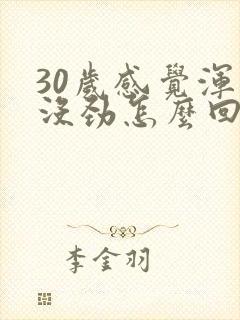 30歲感覺渾
沒勁怎麼回
李金羽